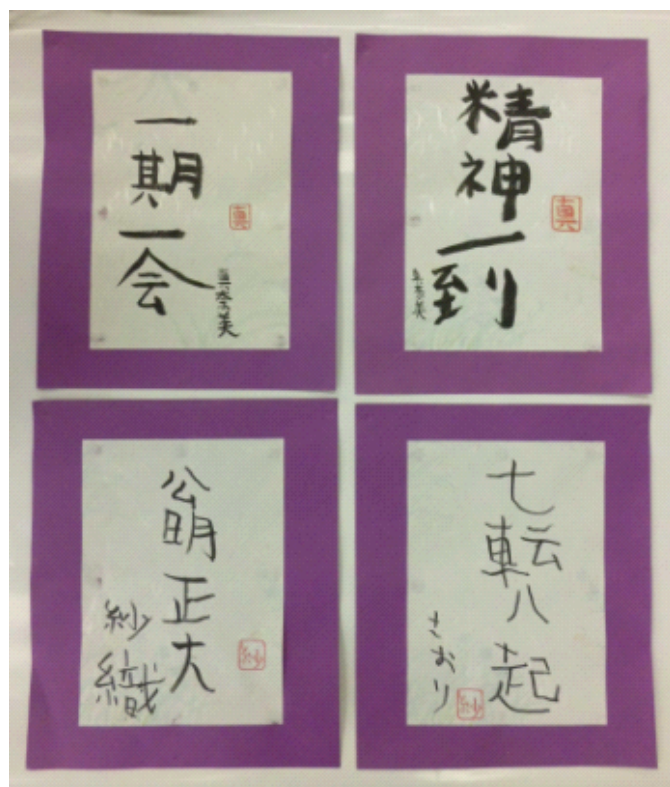 一期一会
真
精神一到
真
公明正大
紗織
紗
七転八起
さおり
紗